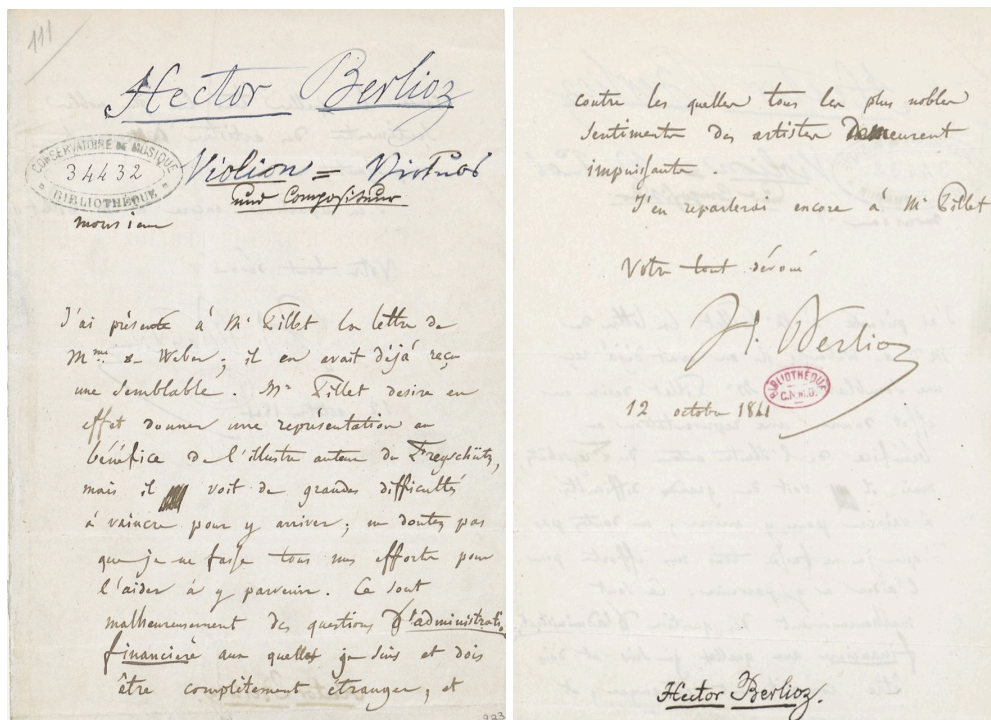 111
Hector Berlioz
CONSERVATOIRE DE MUSIQUE
34432
BIBLIOTHÈQUE
Violion = Virtuos
und Compositeur
Monsieur
J'ai présenté à Mr Pillet la lettre de
Mme de Weber; il en avait déjà reçu
une semblable. Mr Pillet desire en
effet donner une représentation au
bénéfice de l'illustre auteur du Freyschütz,
mais il voit de grandes difficultés
à vaincre pour y arriver; ne doutez pas
que je ne fasse tous mes efforts pour
l'aider à y parvenir. Ce sont
malheureusement des questions d'administration
financière aux quelles je suis et dois
être complètement étranger, et
333
contre les quelles tous les plus nobles
sentiments des artistes demeurent
impuissants.
J'en reparlerai encore à Mr Pillet
Votre tout dévoué
H. Berlioz
BIBLIOTHÈQUE
C.N.M.D.
12 octobre 1841
Hector Berlioz.